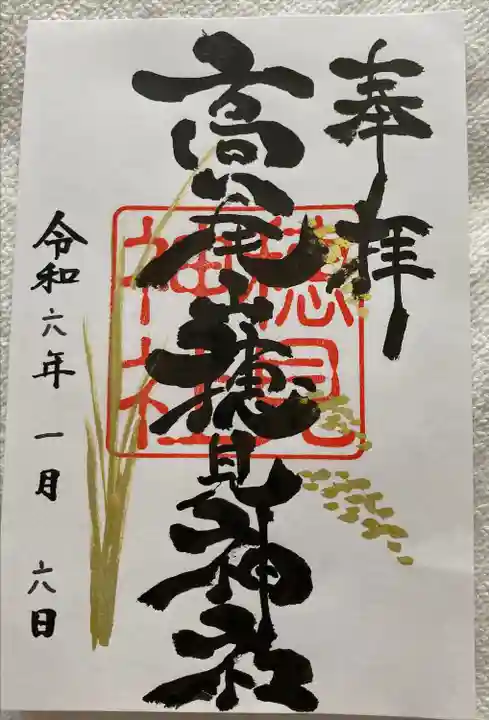 奉拝
高尾山穂見神社
穂見神社
令和六年 一月 六日